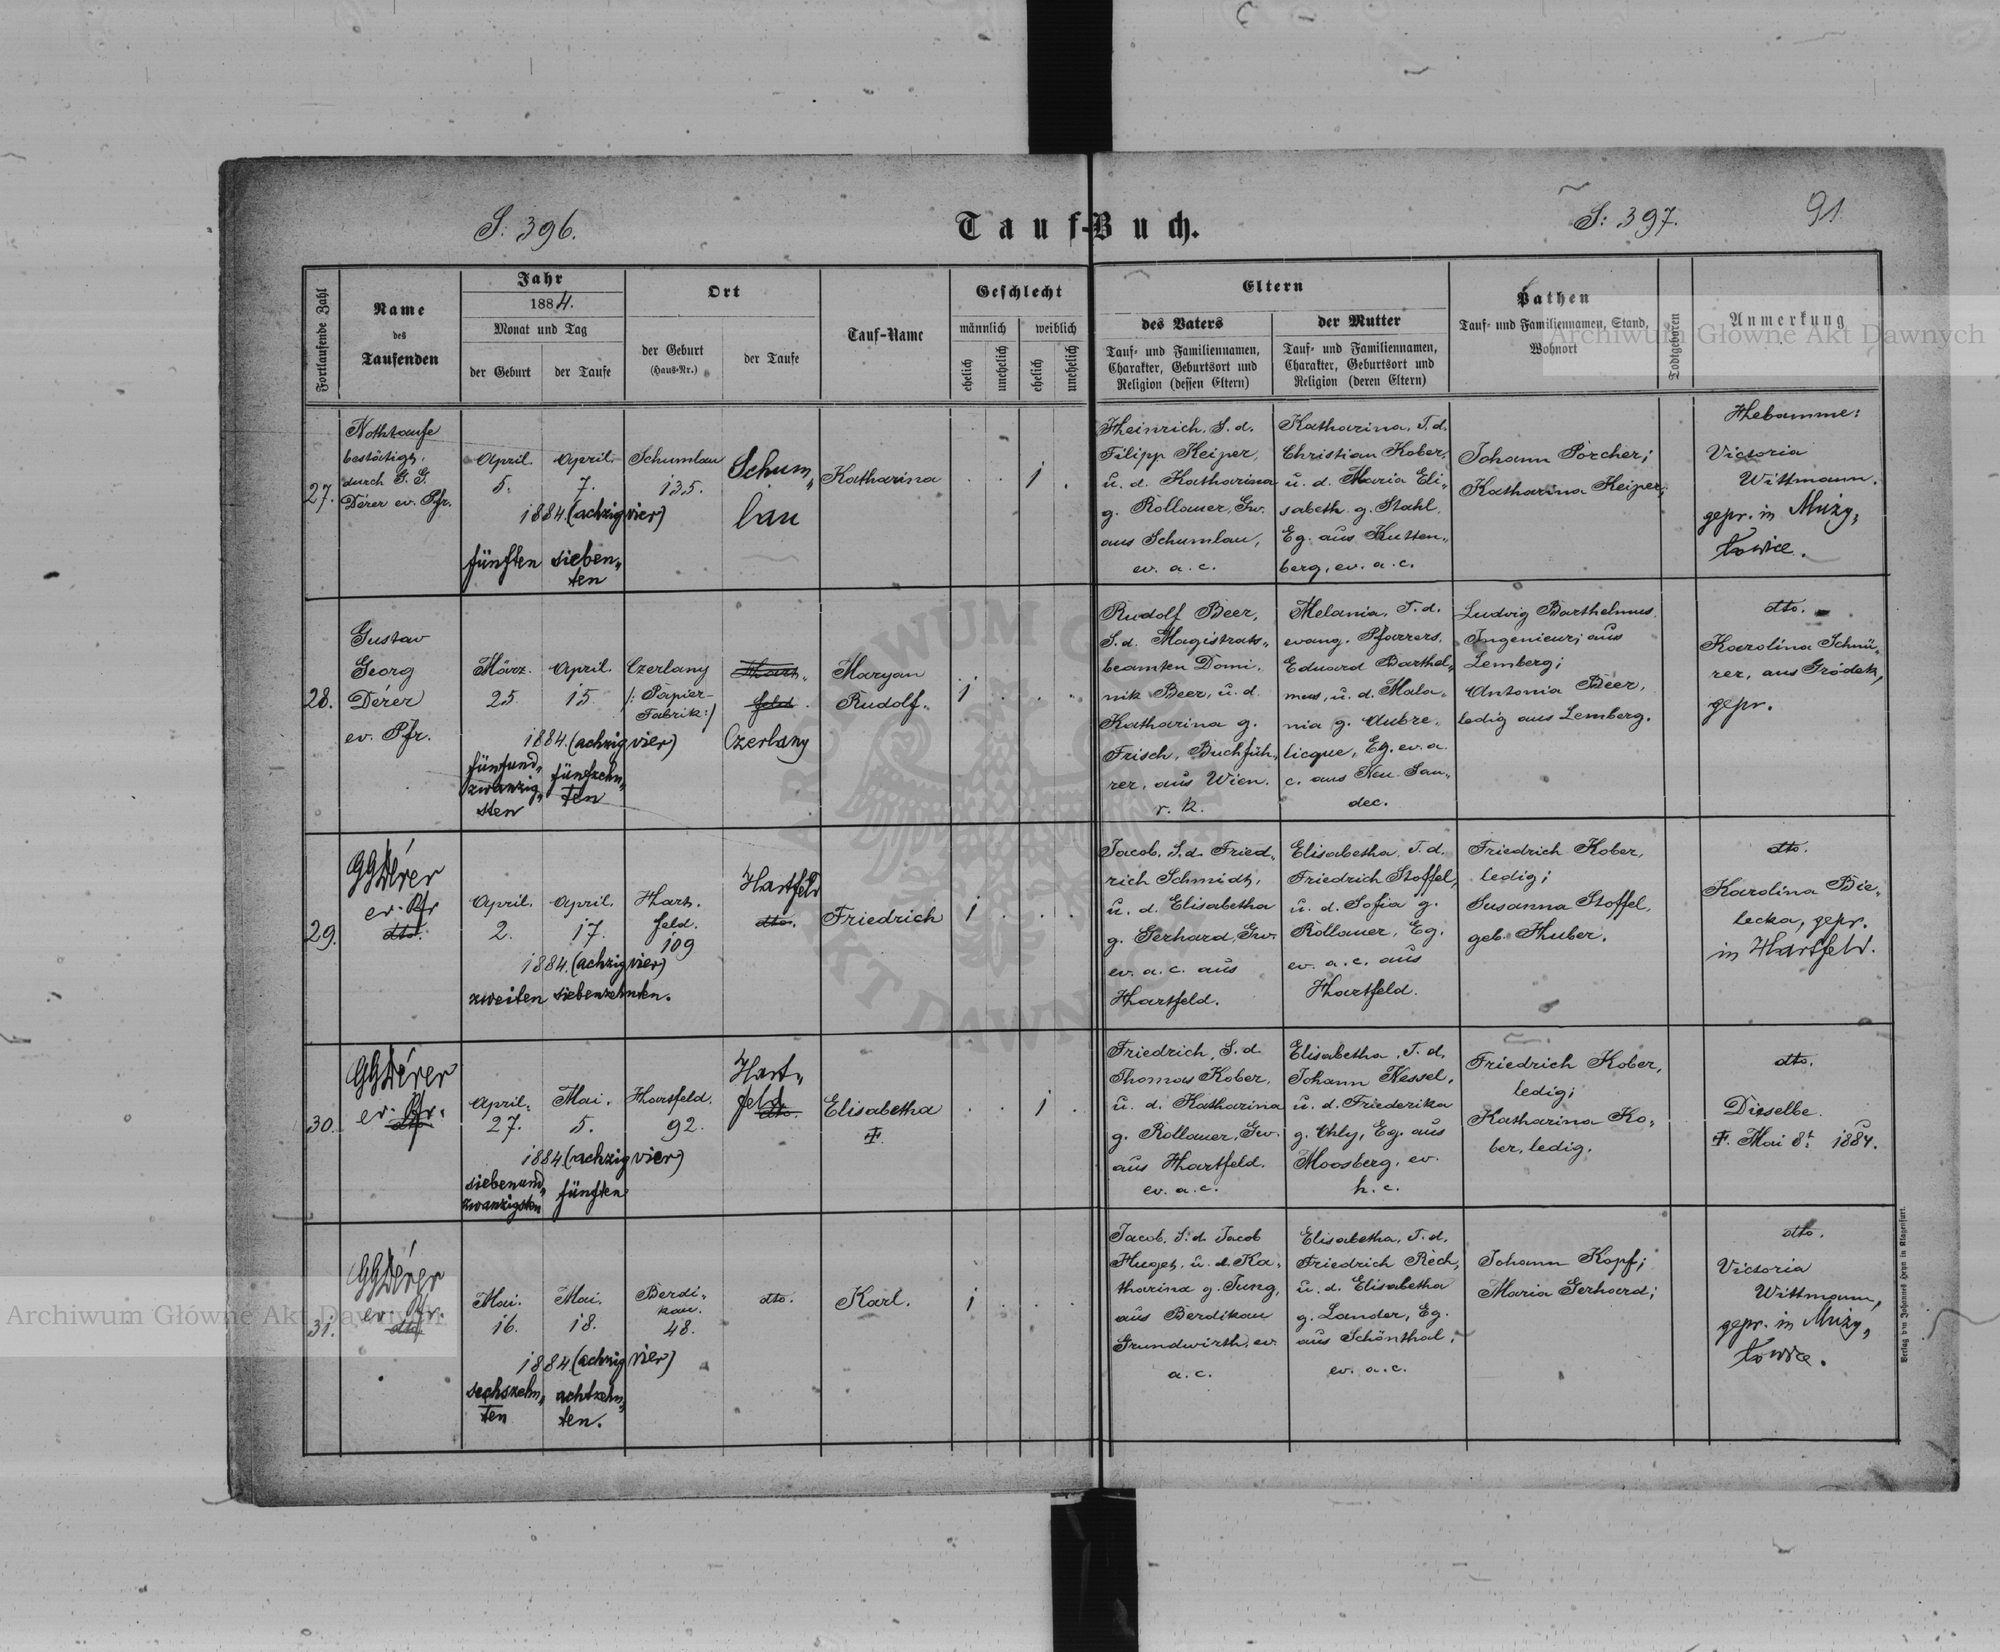 S. 396.
Tauf-Buch.
S: 397.
91
Fortlaufende Zahl
Name
des
Taufenden
Jahr
1884.
Monat und Tag
der Geburt
der Taufe
Ort
der Geburt
(Haus-Nr.)
der Taufe
Tauf-Name
Geschlecht
männlich
weiblich
ehelich
unehelich
ehelich
unehelich
Eltern
des Vaters
Tauf- und Familiennamen,
Charakter, Geburtsort und
Religion (dessen Eltern)
der Mutter
Tauf- und Familiennamen,
Charakter, Geburtsort und
Religion (deren Eltern)
Pathen
Tauf- und Familiennamen, Stand,
Wohnort
Todtgeboren
Anmerkung
27.
Nothtaufe
bestätigt.
durch G. G.
Dérer ev. Pfr.
April.
5.
April.
7.
1884. (achzig vier)
fünften
sieben„
ten
Schumlau
135.
Schum„
lau
Katharina
1
Heinrich, S. d.
Filipp Keiper,
u. d. Katharina
g. Rollauer, Gw.
aus Schumlau,
ev. a. c.
Katharina, T. d.
Christian Kober,
u. d. Maria Eli„
sabeth g. Stahl.
Eg. aus Kutten„
berg, ev. a. c.
Johann Porcher;
Katharina Keiper;
Hebamme:
Victoria
Wittmann.
gepr. in Muży„
łowice.
28.
Gustav
Georg
Dérer
ev. Pfr.
März.
25.
April.
15.
1884. (achzig vier)
fünfund„
zwanzig„
sten
fünfzehn„
ten
Czerlany
/: Papier-
Fabrik:/
Hart„
feld.
Czerlany
Maryan
Rudolf.
1
Rudolf Beer,
S. d. Magistrats„
beamten Domi„
nik Beer, u. d.
Katharina g.
Frisch, Buchfüh„
rer, aus Wien.
r. k.
Melania, T. d.
evang. Pfarrers
Eduard Barthel„
mus, u. d. Mala„
nia g. Aubre„
licque, Eg. ev. a.
c. aus Neu-San„
dec.
Ludvig Barthelmus.
Ingenieur; aus
Lemberg;
Antonia Beer,
ledig aus Lemberg.
dto.
Karolina Schnü„
rer, aus Gródek,
gepr.
29.
GGDérer
ev. Pfr
dto.
April.
2.
April.
17.
1884. (achzig vier)
zweiten
siebenzehnten.
Hart„
feld.
109
Hartfeld
dto.
Friedrich
1
Jacob, S. d. Fried„
rich Schmidt,
u. d. Elisabetha
g. Gerhard, Gw.
ev. a. c. aus
Hartfeld.
Elisabetha, T. d.
Friedrich Stoffel,
u. d. Sofia g.
Rollauer, Eg.
ev. a. c. aus
Hartfeld.
Friedrich Kober,
ledig;
Susanna Stoffel,
geb. Huber.
dto.
Karolina Bie„
lecka, gepr.
in Hartfeld.
30.
GGDérer
ev. Pfr.
dto.
April.
27.
Mai.
5.
1884. (achzig vier)
siebenund„
zwanzigsten
fünften
Hartfeld.
92.
Hart„
feld
dto.
Elisabetha
1
Friedrich, S. d.
Thomas Kober,
u. d. Katharina
g. Rollauer, Gw.
aus Hartfeld.
ev. a. c.
Elisabetha, T. d.
Johann Nessel,
u. d. Friederika
g. Uhly, Eg. aus
Moosberg, ev.
h. c.
Friedrich Kober,
ledig;
Katharina Ko„
ber, ledig.
dto.
Dieselbe.
Mai 8t. 1884.
31.
GGDérer
ev. Pfr.
dto.
Mai.
16.
Mai.
18.
1884 (achzig vier)
sechszehn„
ten
achtzehn„
ten.
Berdi„
kau.
48.
dto.
Karl.
1
Jacob, S. d. Jacob
Huget, u. d. Ka„
tharina g. Jung,
aus Berdikau
Grundwirth, ev.
a. c.
Elisabetha, T. d.
Friedrich Rech,
u. d. Elisabetha
g. Lander, Eg.
aus Schönthal,
ev. a. c.
Johann Kopf;
Maria Gerhard;
dto.
Victoria
Wittmann,
gepr. in Muży„
łowice.
Verlag von Johannes Heyn in Klagenfurt.
Archiwum Główne Akt Dawnych
Archiwum Główne Akt Dawnych
ARCHIWUM GŁÓWNE
AKT DAWNYCH